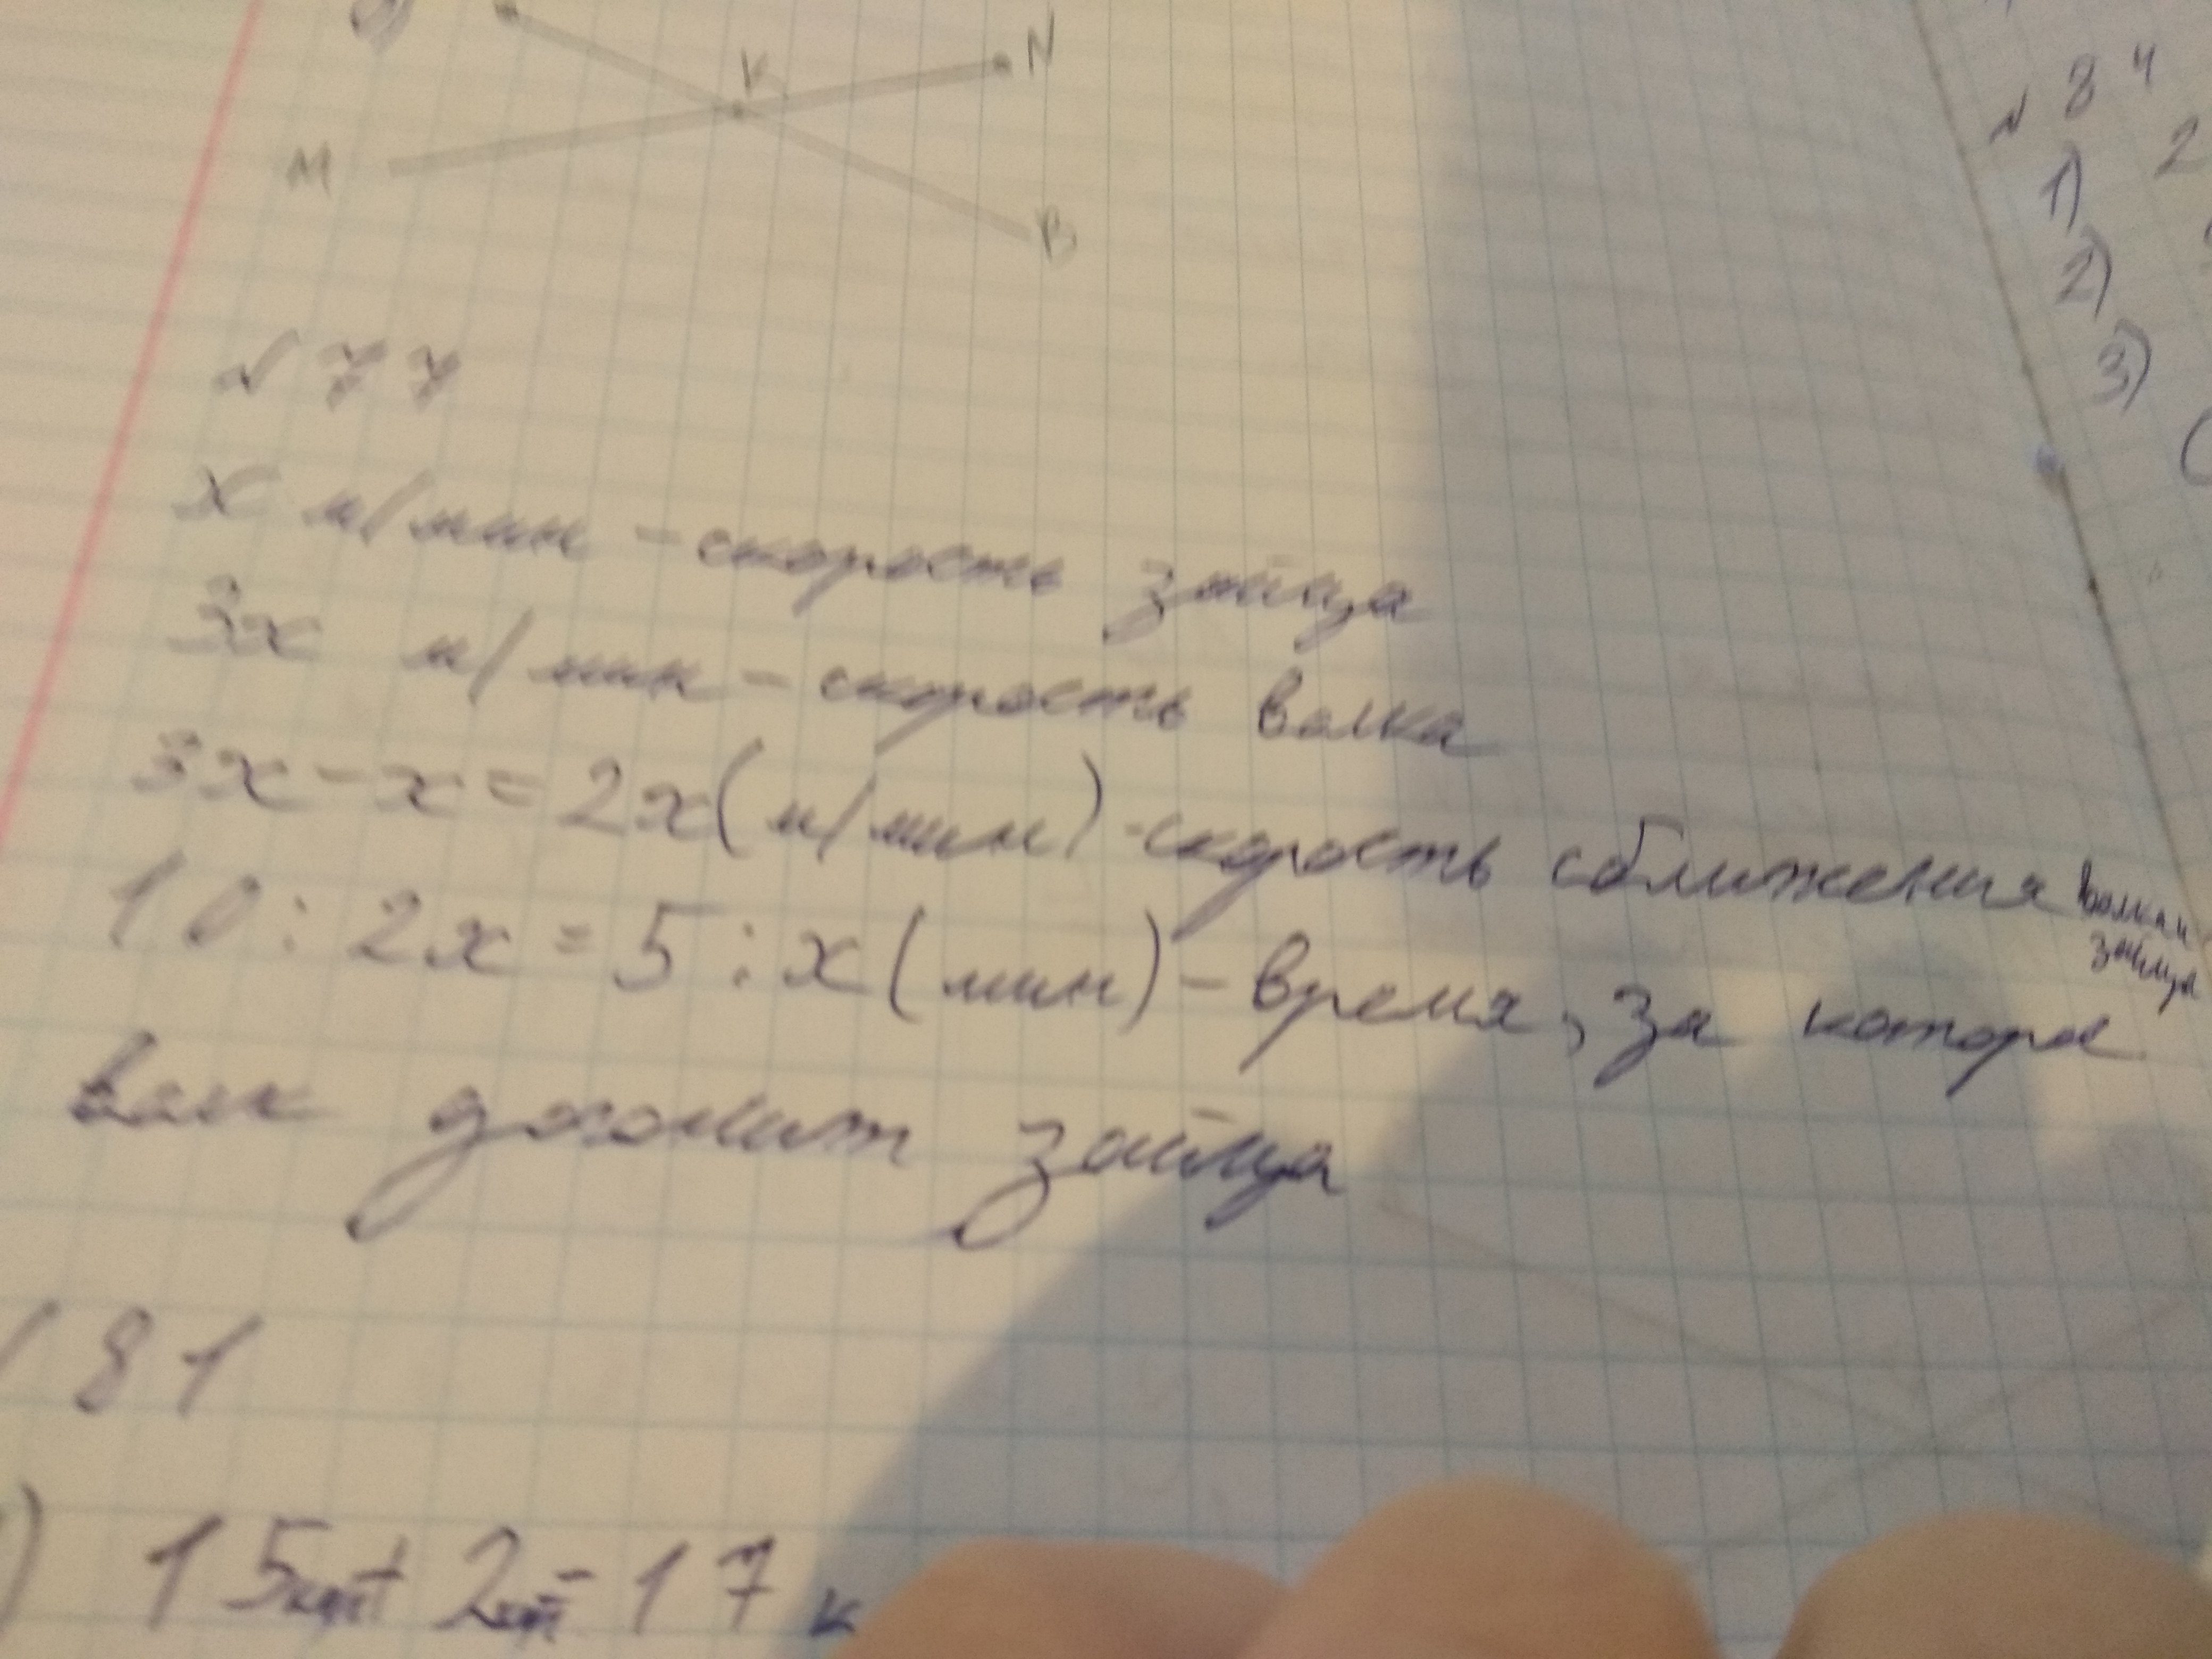 K
N
M
B
№ 77
x м/мин - скорость зайца
3x м/мин - скорость волка
3x - x = 2x (м/мин) - скорость сближения волка и зайца
10 : 2x = 5 : x (мин) - время, за которое
волк догонит зайца
81
15 + 2 = 17 к
№ 84
1) 2
2)
3)